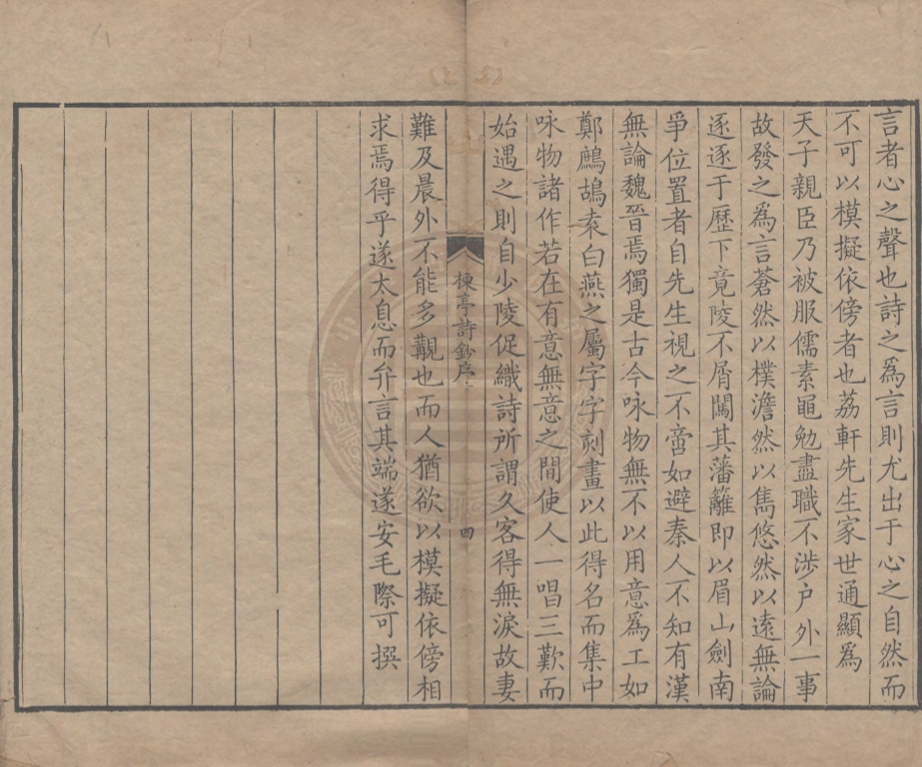 言者心之聲也詩之爲言則尤出于心之自然而
不可以模擬依傍者也荔軒先生家世通顯爲
天子親臣乃被服儒素黽勉盡職不渉户外一事
故發之爲言蒼然以樸澹然以雋悠然以遠無論
逐逐于歷下竟陵不屑闖其藩籬即以眉山劍南
爭位置者自先生視之不啻如避秦人不知有漢
無論魏晉焉獨是古今咏物無不以用意爲工如
鄭鷓鴣袁白燕之屬字字刻畫以此得名而集中
咏物諸作若在有意無意之間使人一唱三歎而
始遇之則自少陵促織詩所謂久客得無淚故妻
楝亭詩鈔序
四
難及晨外不能多覯也而人猶欲以模擬依傍相
求焉得乎遂太息而弁言其端遂安毛際可撰